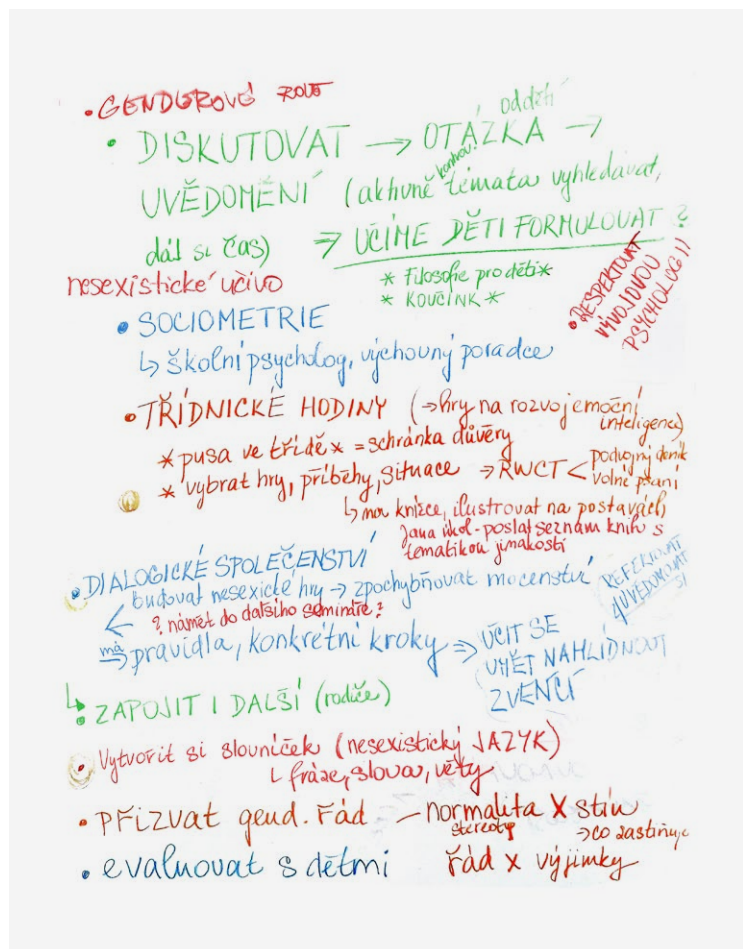 • GENDEROVÉ ROLE
od dětí
• DISKUTOVAT → OTÁZKA →
UVĚDOMĚNÍ (aktivně témata vyhledávat,
dát si čas) ⇒ UČÍME DĚTI FORMULOVAT ?
* Filosofie pro děti *
* KOUČINK *
nesexistické učivo
• RESPEKTOVAT
VÝVOJOVOU
PSYCHOLOGII
• SOCIOMETRIE
↳ školní psycholog, výchovný poradce
• TŘÍDNICKÉ HODINY (→ hry na rozvoj emoční
inteligence)
* pusa ve třídě * = schránka důvěry
* vybrat hry, příběhy, situace → RWCT < podvojný deník
volné psaní
↳ knížce, ilustrovat na postavách
Jana úkol - poslat seznam knih s
tematikou jinakosti
• DIALOGICKÉ SPOLEČENSTVÍ
budovat nesexické hry → zpochybňovat mocenství
REFLEKTOVAT
UVĚDOMOVAT
SI
? námět do dalšího semináře ?
má
⇒ pravidla, konkrétní kroky ⇒ UČIT SE
UMĚT NAHLÍDNOUT
ZVENČÍ
↳ • ZAPOJIT I DALŠÍ (rodiče)
• Vytvořit si slovníček (nesexistický JAZYK)
↳ fráze, slova, věty
• Přizvat gend. řád – normalita X stín
stereotyp → co zastiňuje
• evaluovat s dětmi řád x výjimky